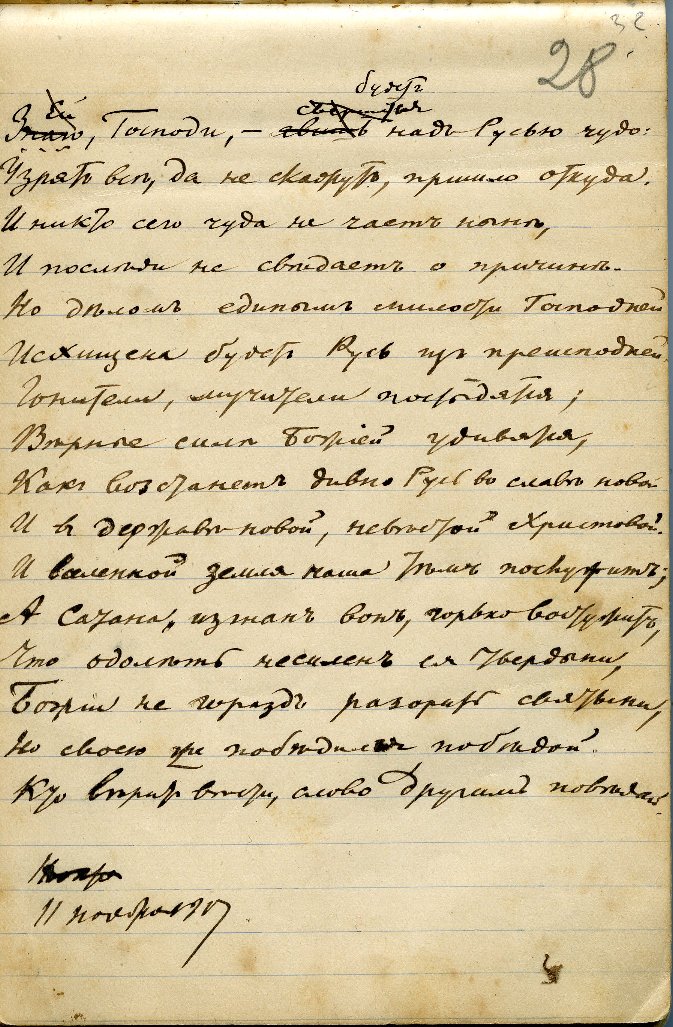 32
28
Ей
будетъ
свершится
Знаю, Господи, – явить надъ Русью чудо:
Узрятъ всѣ, да не скажутъ, пришло откуда.
И никто сего чуда не чаетъ нынѣ,
И послѣди не свѣдаетъ о причинѣ.
Но дѣломъ единымъ милости Господней
Исхищена будетъ Русь изъ преисподней.
Гонители, мучители постыдятся;
Вѣрные силѣ Божіей удивятся,
Какъ возстанетъ дивно Русь во славѣ новой
И въ державѣ новой, невѣстой Христовой.
И вселенной земля наша тѣмъ послужитъ;
А Сатана, изгнанъ вонъ, горько востужитъ,
Что одолѣть несиленъ ея твердыни,
Божіи не гораздъ разорить святыни,
Но своею же побѣдился побѣдой.
Кто вѣритъ вѣсти, слово другимъ повѣдай.
11 ноября 1917